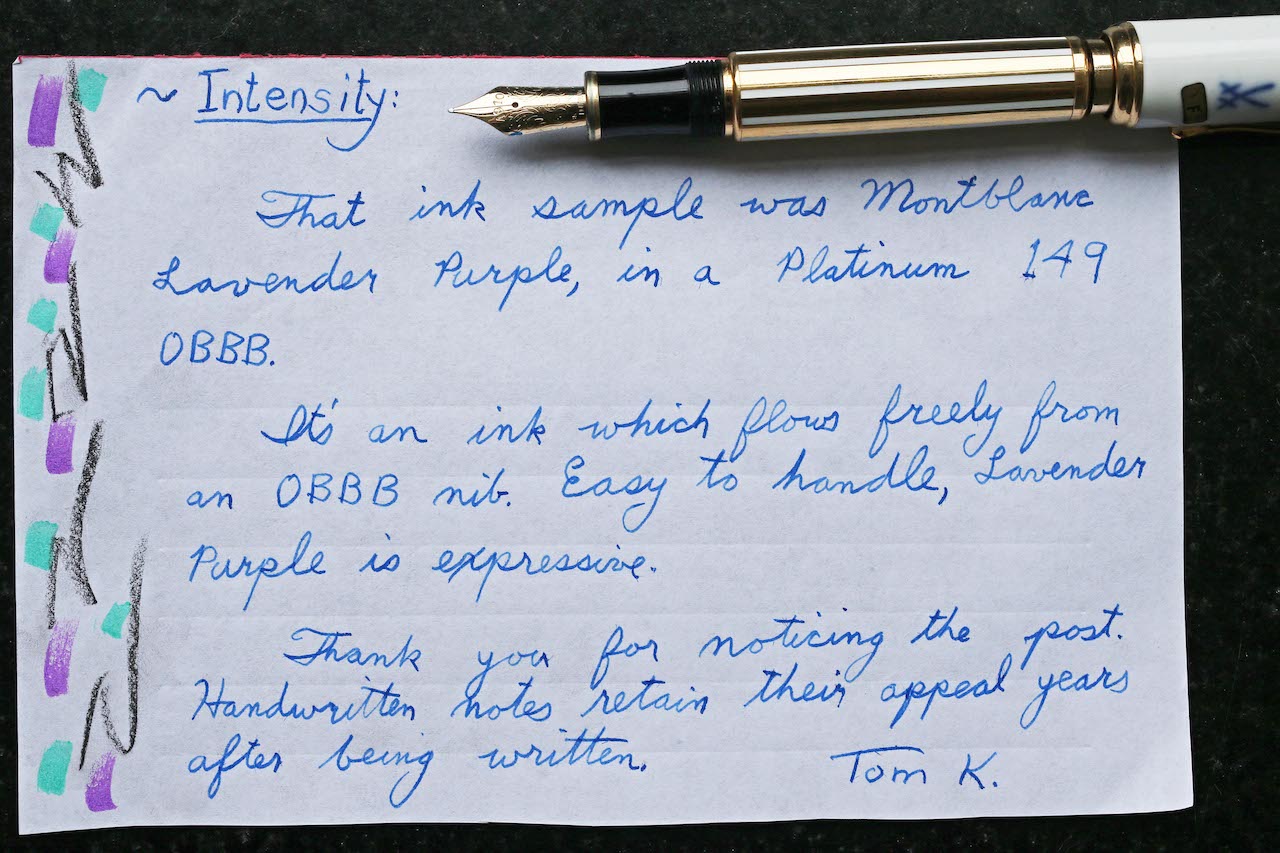 ~ Intensity:
That ink sample was Montblanc
Lavender Purple, in a Platinum 149
OBBB.
It's an ink which flows freely from
an OBBB nib. Easy to handle, Lavender
Purple is expressive.
Thank you for noticing the post.
Handwritten notes retain their appeal years
after being written.
Tom K.
F